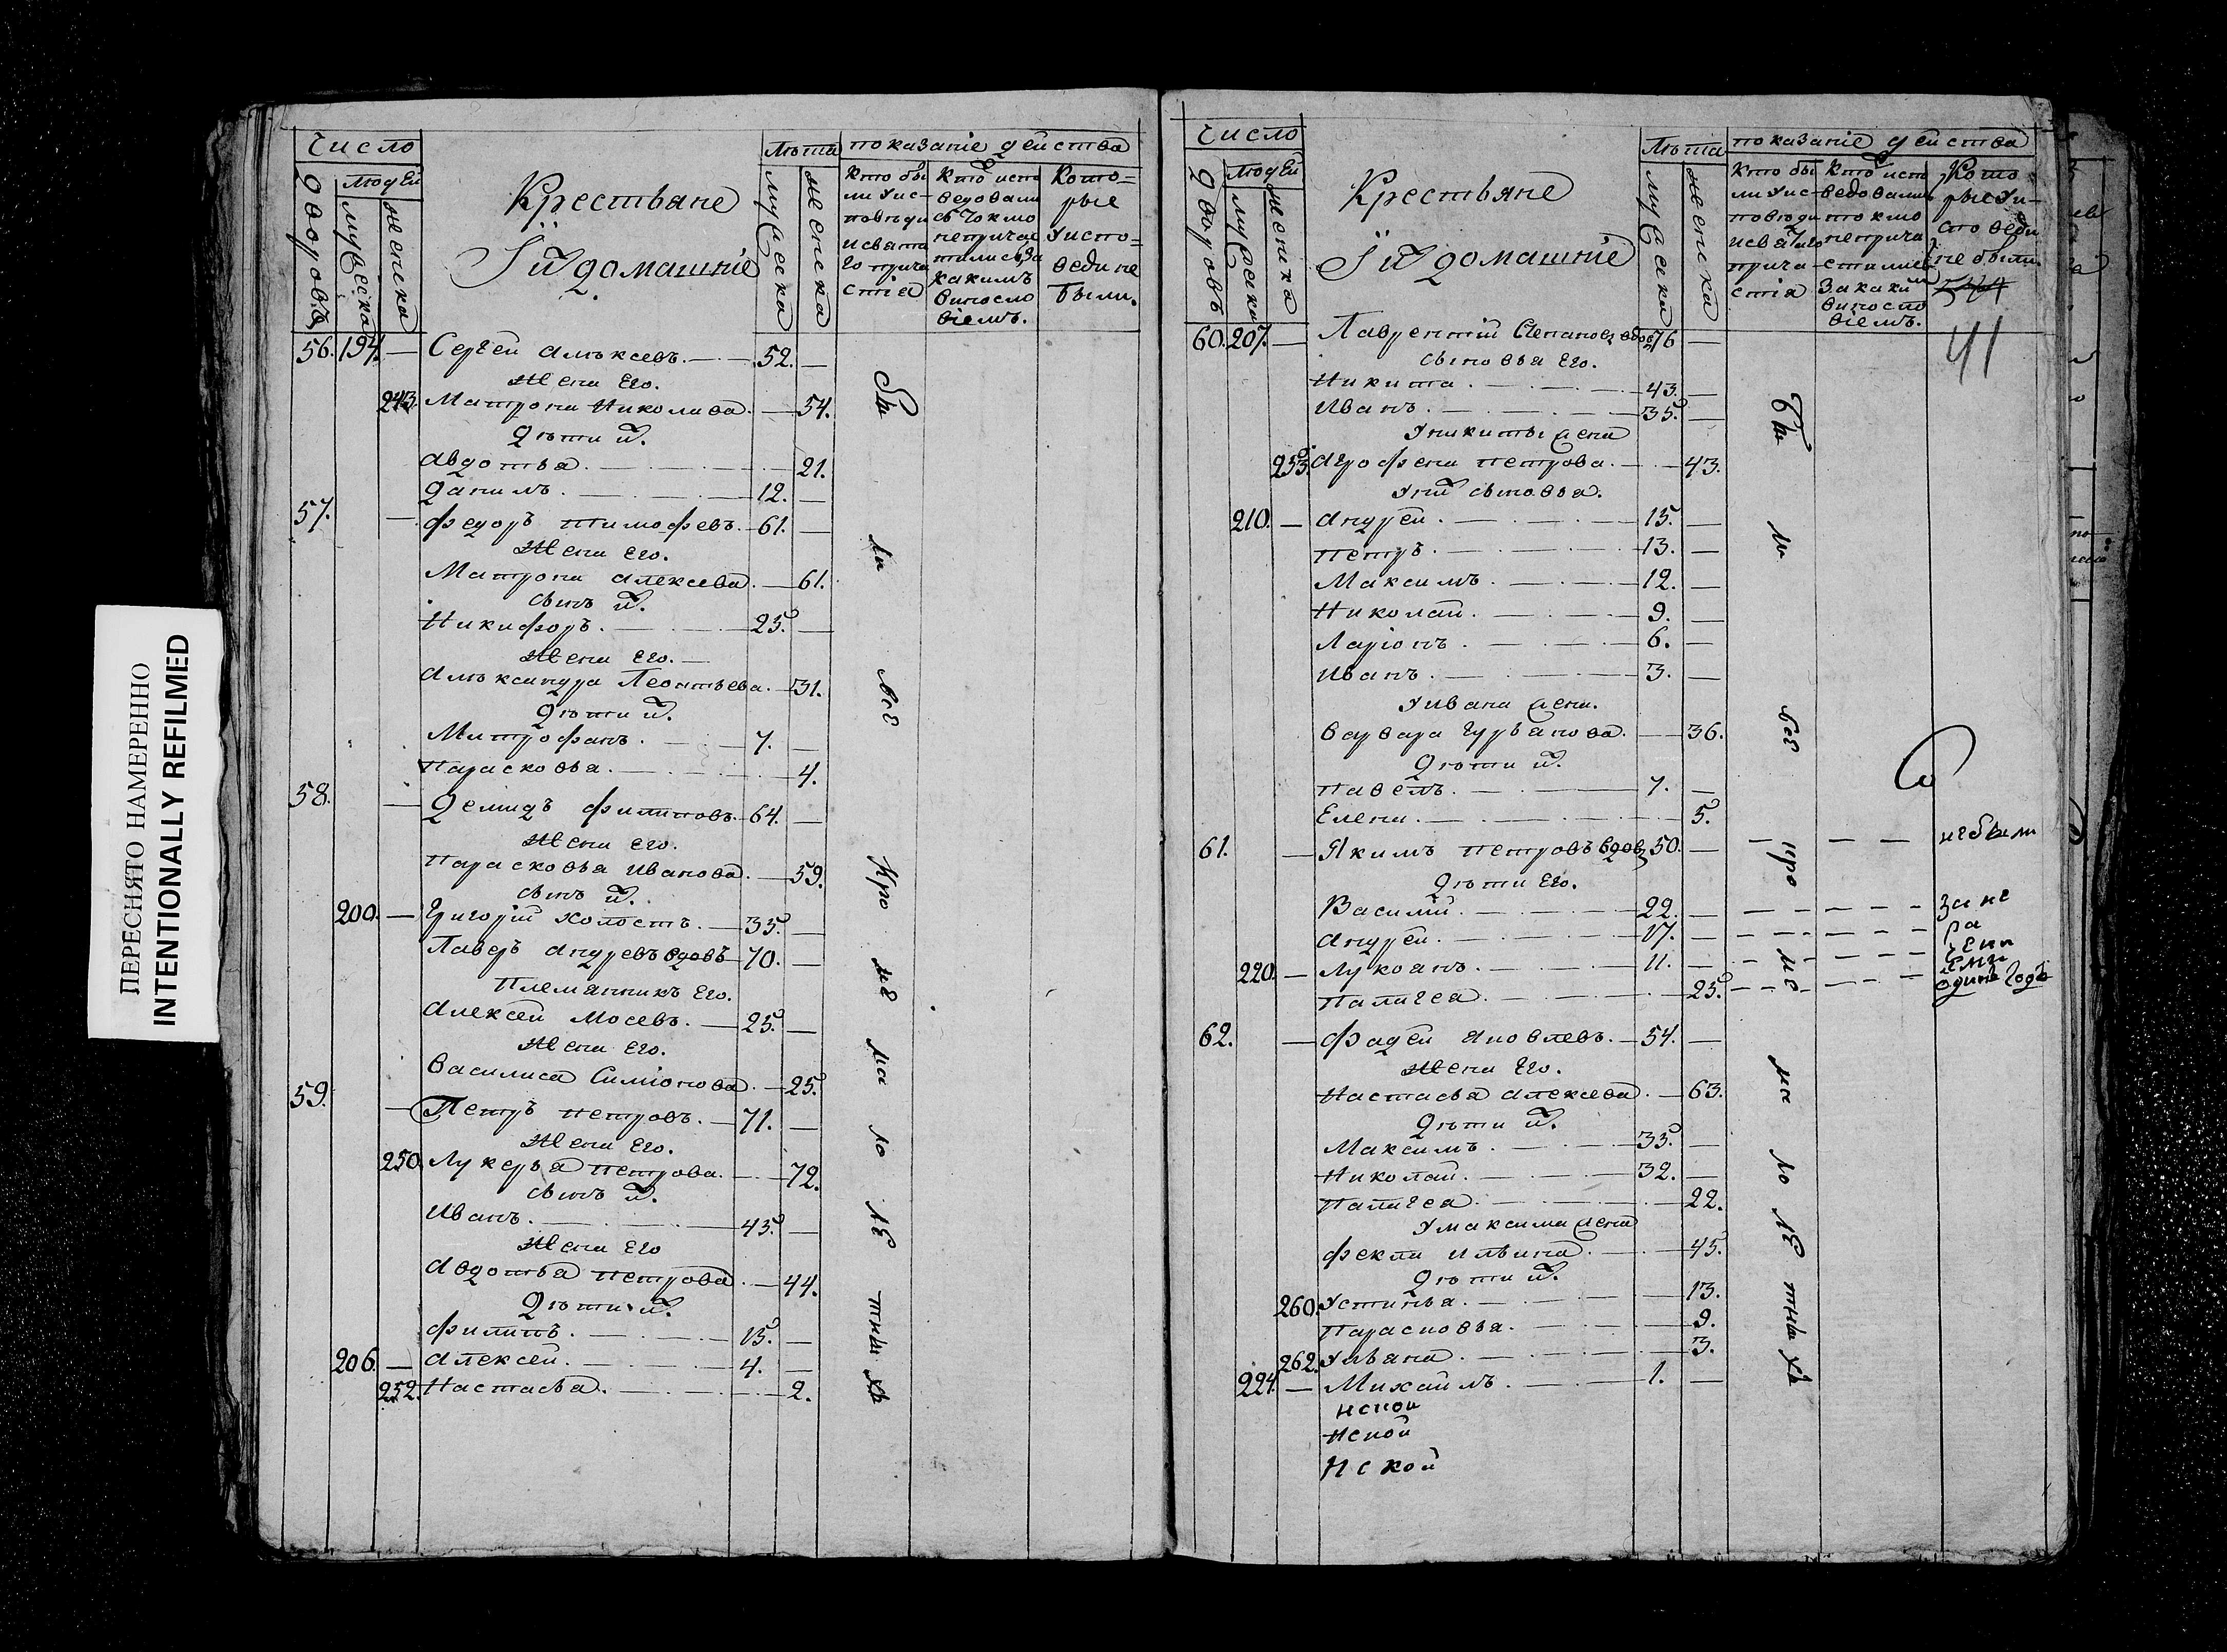 ПЕРЕСНЯТО НАМЕРЕННО
INTENTIONALLY REFILMED
Число
Дворовъ
людей
мужеска
женска
Крестьяне
И ихъ домашнiе
Лѣта
мужеска
женска
показанiе действа
Кто бы
ли у ис-
поведи
и свята
го прича
стiа
Кто испо
ведовали
сь токмо
непричас
тилися за
какимъ
винословiемъ.
Кото=
рые
у испо=
веди не
были.
56. 194. — Сергей Алѣксевъ. — 52. —
Жена Его.
243. Матрона Николаева. — 54.
Дѣти ихъ.
Авдотья. — 21.
Данилъ. — 12. —
57. — Федоръ Тимофевъ. — 61. —
Жена Его.
Матрона Алексева. — 61.
Сынъ ихъ.
Никифоръ. — 25. —
Жена Его. —
Алѣксандра Леонтьева. — 31.
Дѣти ихъ.
Митрофанъ. — 7. —
Парасковья. — 4.
58. — Демидъ Филиповъ. — 64. —
Жена Его.
Парасковья Иванова. — 59.
Сынъ ихъ.
200. — Григорiй холостъ. — 35. —
Лаверъ Андревъ вдовъ — 70. —
Племянникъ Его.
Алексей Мосевъ. — 25. —
Жена Его.
Василиса Симiонова. — 25.
59. — Петръ Петровъ. — 71. —
Жена Его.
250. Лукерья Петрова. — 72.
Сынъ ихъ.
Иванъ. — 43. —
Жена Его
Авдотья Петрова. — 44.
Дѣти ихъ.
Филипъ. — 15. —
206. — Алексей. — 4. —
252. Настасья. — 2.
Бы
ли
все
Кро
ме
ма
ло
лЕ
тны
хъ
Число
Дворовъ
людей
мужеска
женска
Крестьяне
И ихъ домашнiе
Лѣта
мужеска
женска
показанiе действа
Кто бы
ли у ис-
поведи
и святаго
прича
стiя
Кто испо
ведовались
токмо
неприча
стились
за какимъ
винословiемъ.
Кото
рые у и-
споведи
не были.
41
60. 207. — Лаврентiй Степановъ вдовъ 76 —
Сыновья Его.
Никита. — 43. —
Иванъ. — 35. —
У Никиты жена
253. Агрофена Петрова. — 43.
У нихъ сыновья.
210. — Андрей. — 15. —
Петръ. — 13. —
Максимъ. — 12. —
Николай. — 9. —
Ларiонъ. — 6. —
Иванъ. — 3. —
У Ивана жена.
Варвара Гурьанова. — 36.
Дѣти ихъ.
Павелъ. — 7. —
Елена. — 5.
61. — Якимъ Петровъ вдовъ 50. — небыли
Дѣти Его.
Василiй. — 22. — за не
Андрей. — 17. — ра
220. — Лукоанъ. — 11. —
Палагеа. — 25. — одинъ годъ
62. — Фадей Яковлевъ. — 54. —
Жена Его.
Настасья Алексева. — 63.
Дѣти ихъ.
Максимъ. — 33. —
Николай. — 32. —
Палагеа. — 22.
У Максима жена
Фекла Ильина. — 45.
Дѣти ихъ.
260. Устинья. — 13.
Парасковья. — 9.
262. Ульана. — 3.
224. — Михайлъ. — 1. —
нской
нской
нской
Бы
ли
все
кро
ме
ма
ло
лЕ
тны
хъ